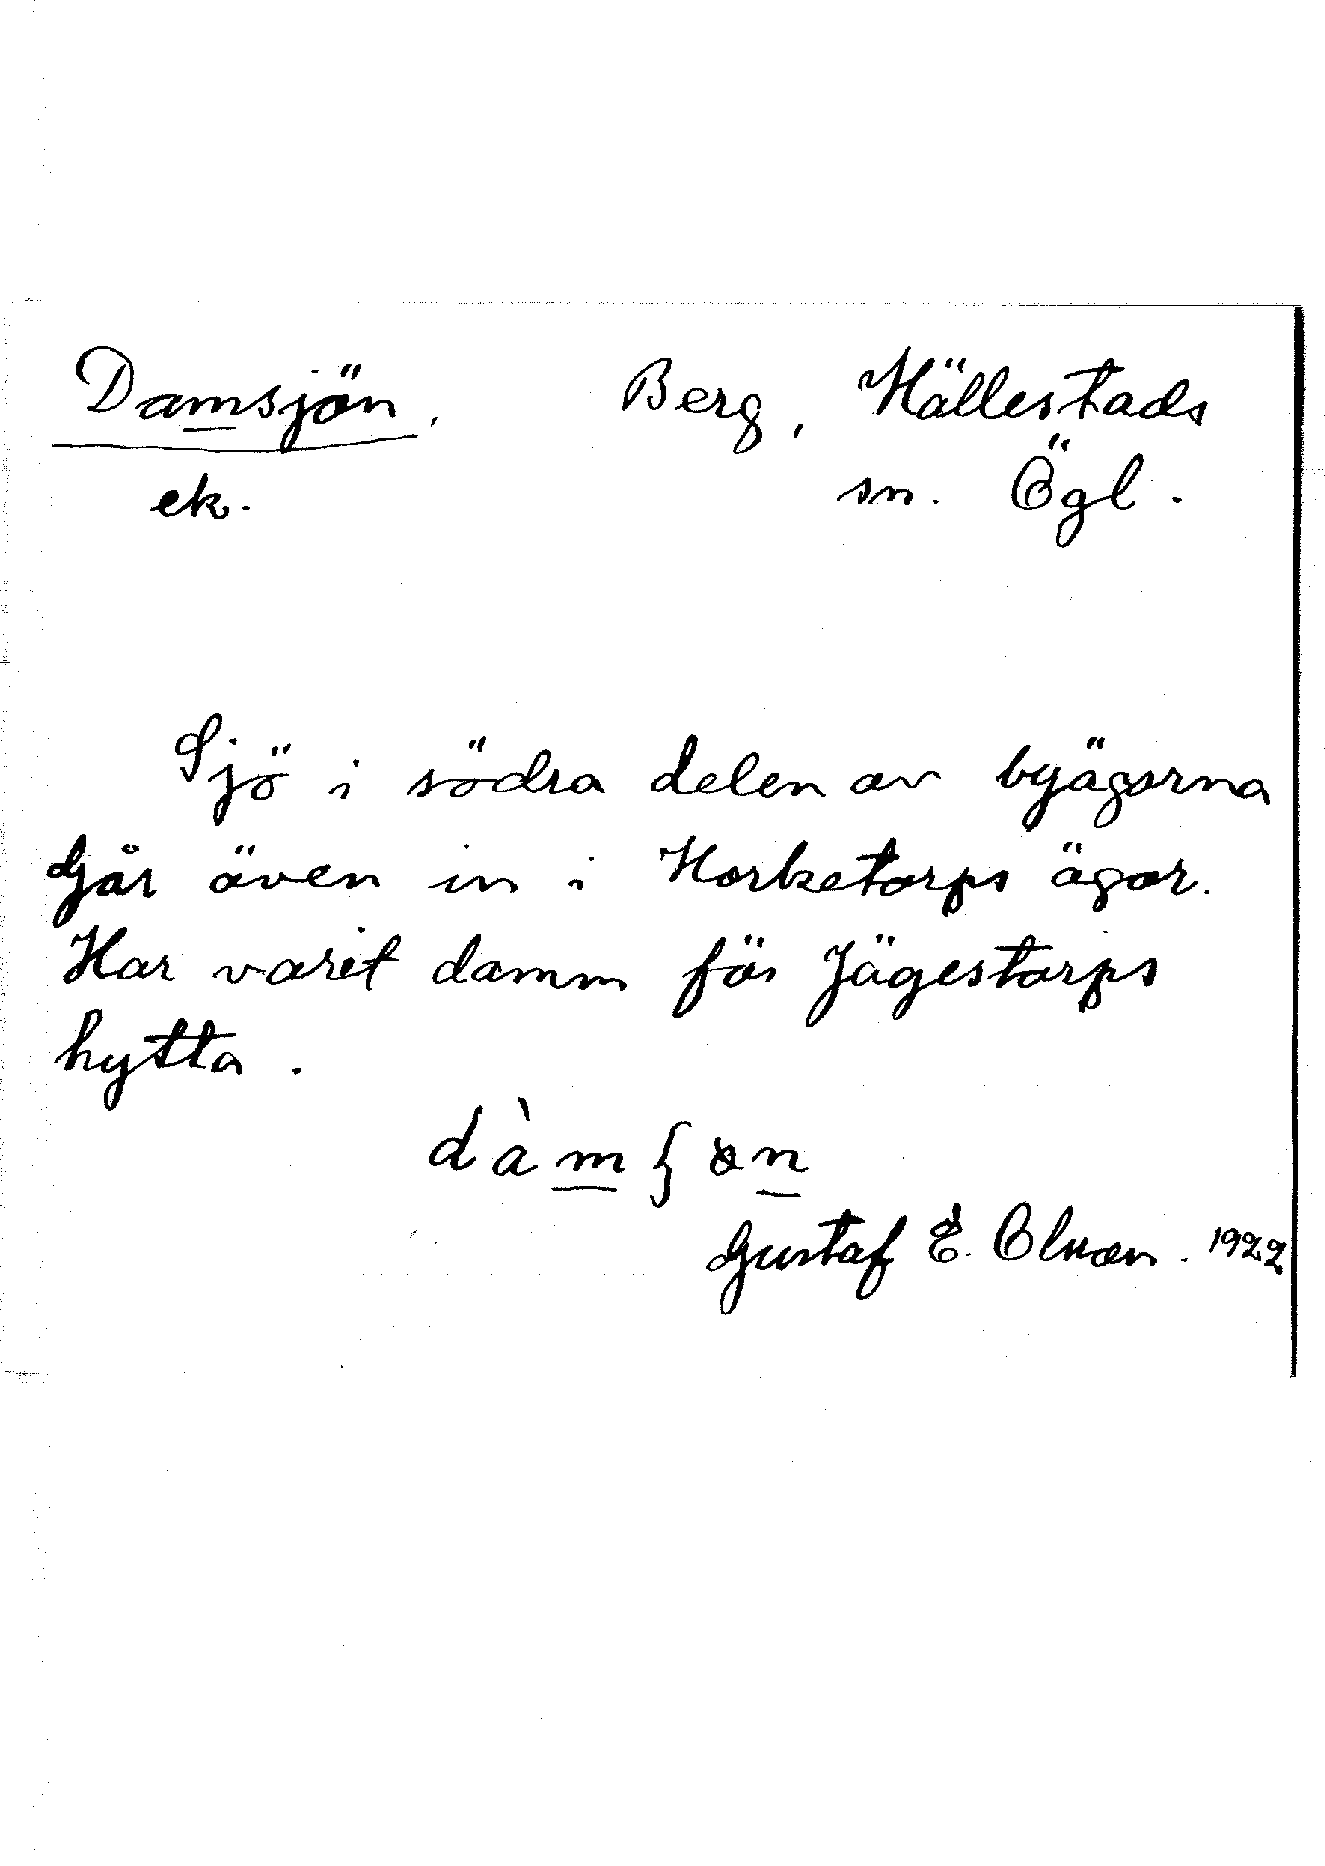 Damsjön, Berg, Hällestads
ek. sn. Ögl.
Sjö i södra delen av byägorna
Går även in i Horketorps ägor.
Har varit damm för Jägestorps
hytta.
dàmʃɵn
Gustaf E. Olsson. 1922